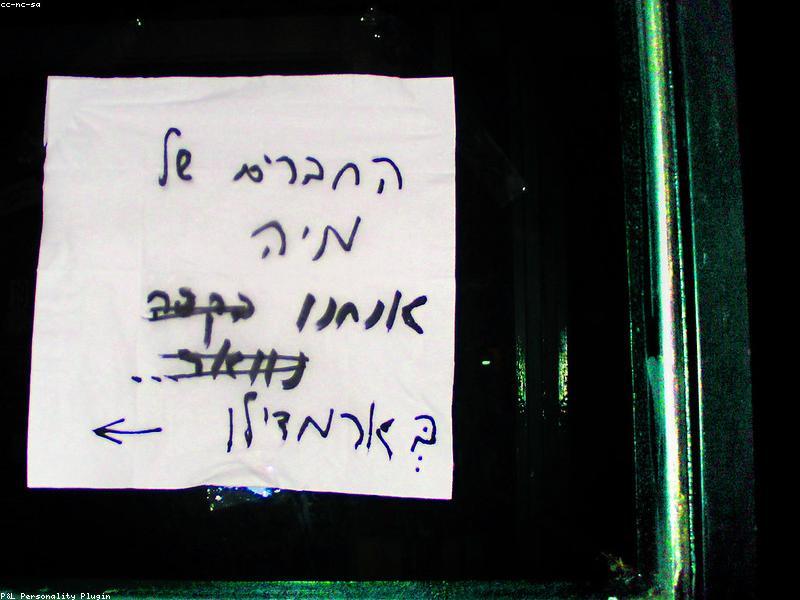 cc-nc-sa
החברים של
מיה
אנחנו
..
בְּארמדילו ←
P&L Personality Plugin